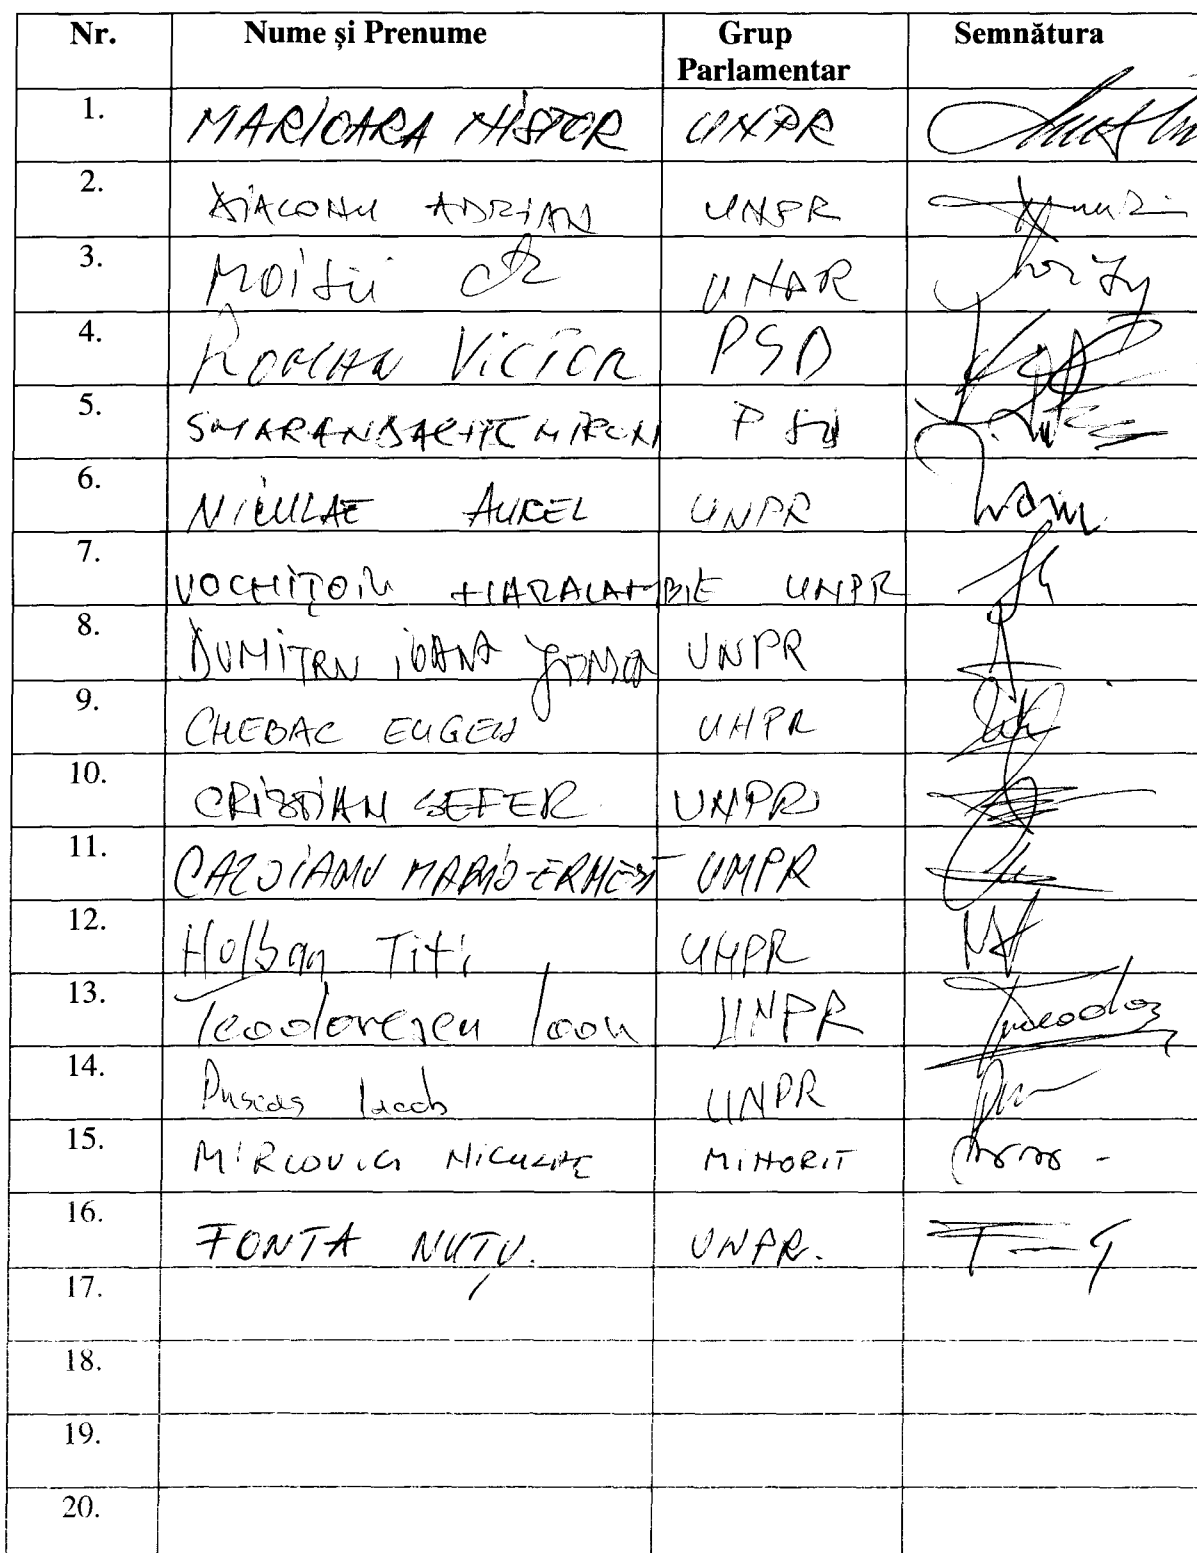 Nr. Nume și Prenume Grup Parlamentar Semnătura
1. MARIOARA NISTOR UNPR
2. DIACONU ADRIAN UNPR
3. MOISII UNPR
4. ROMAN VICTOR PSD
5. PSD
6. NICULAE AUREL UNPR
7. VOCHIȚOIU HARALAMBIE UNPR
8. DUMITRU IOANA UNPR
9. CHEBAC EUGEN UNPR
10. CRISTIAN SEFER UNPR
11. CAZOIANU MARIO-ERNEST UNPR
12. Holban Titi UNPR
13. Teodorescu Ioan UNPR
14. Puscas Iacob UNPR
15. MIRCOVICI NICULAE MINORIT
16. FONTA NUȚU. UNPR.
17.
18.
19.
20.